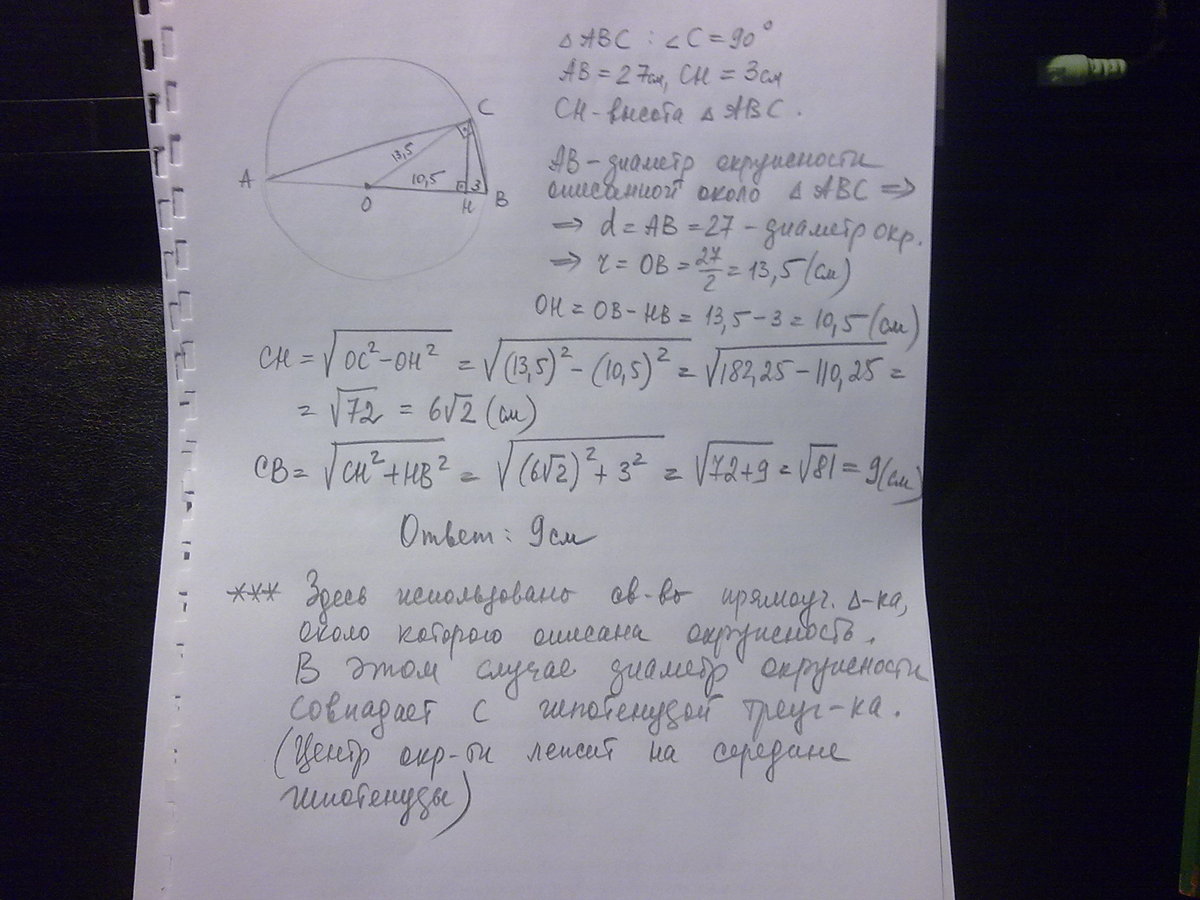 △ABC : ∠C = 90°
AB = 27см, CH = 3см
CH - высота △ABC.
C
A
13,5
10,5
3
O
H
B
AB - диаметр окружности
описанной около △ABC ⇒
⇒ d = AB = 27 - диаметр окр.
⇒ r = OB = 27/2 = 13,5 (см)
OH = OB - HB = 13,5 - 3 = 10,5 (см)
CH = √(OC² - OH²) = √((13,5)² - (10,5)²) = √(182,25 - 110,25) =
= √72 = 6√2 (см)
CB = √(CH² + HB²) = √((6√2)² + 3²) = √(72+9) = √81 = 9 (см)
Ответ: 9см
*** Здесь использовано св-во прямоуг. △-ка,
около которого описана окружность.
В этом случае диаметр окружности
совпадает с гипотенузой треуг-ка.
(Центр окр-ти лежит на середине
гипотенузы)